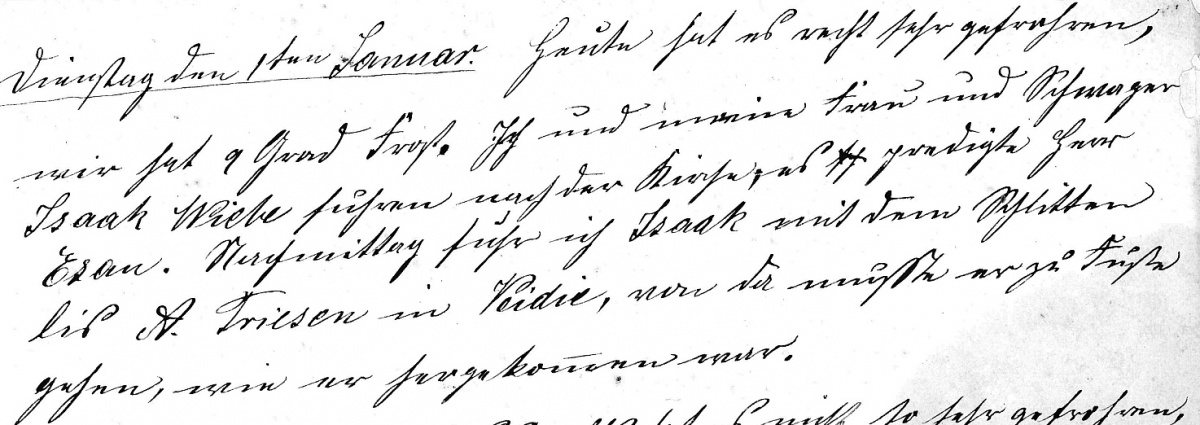 Dienstag den 1ten Januar. Heute hat es recht sehr gefrohren,
wir hat 9 Grad Frost. Ich und meine Frau und Schwager
Isaak Wiebe fuhren nach der Kirche, es predigte Herr
Esau. Nachmittag fuhr ich Isaak mit dem Schlitten
bis A. Friesen in, von da musste er zu Fuße
gehen, wie er hergekom̄en war.
es nicht so sehr gefrohren,